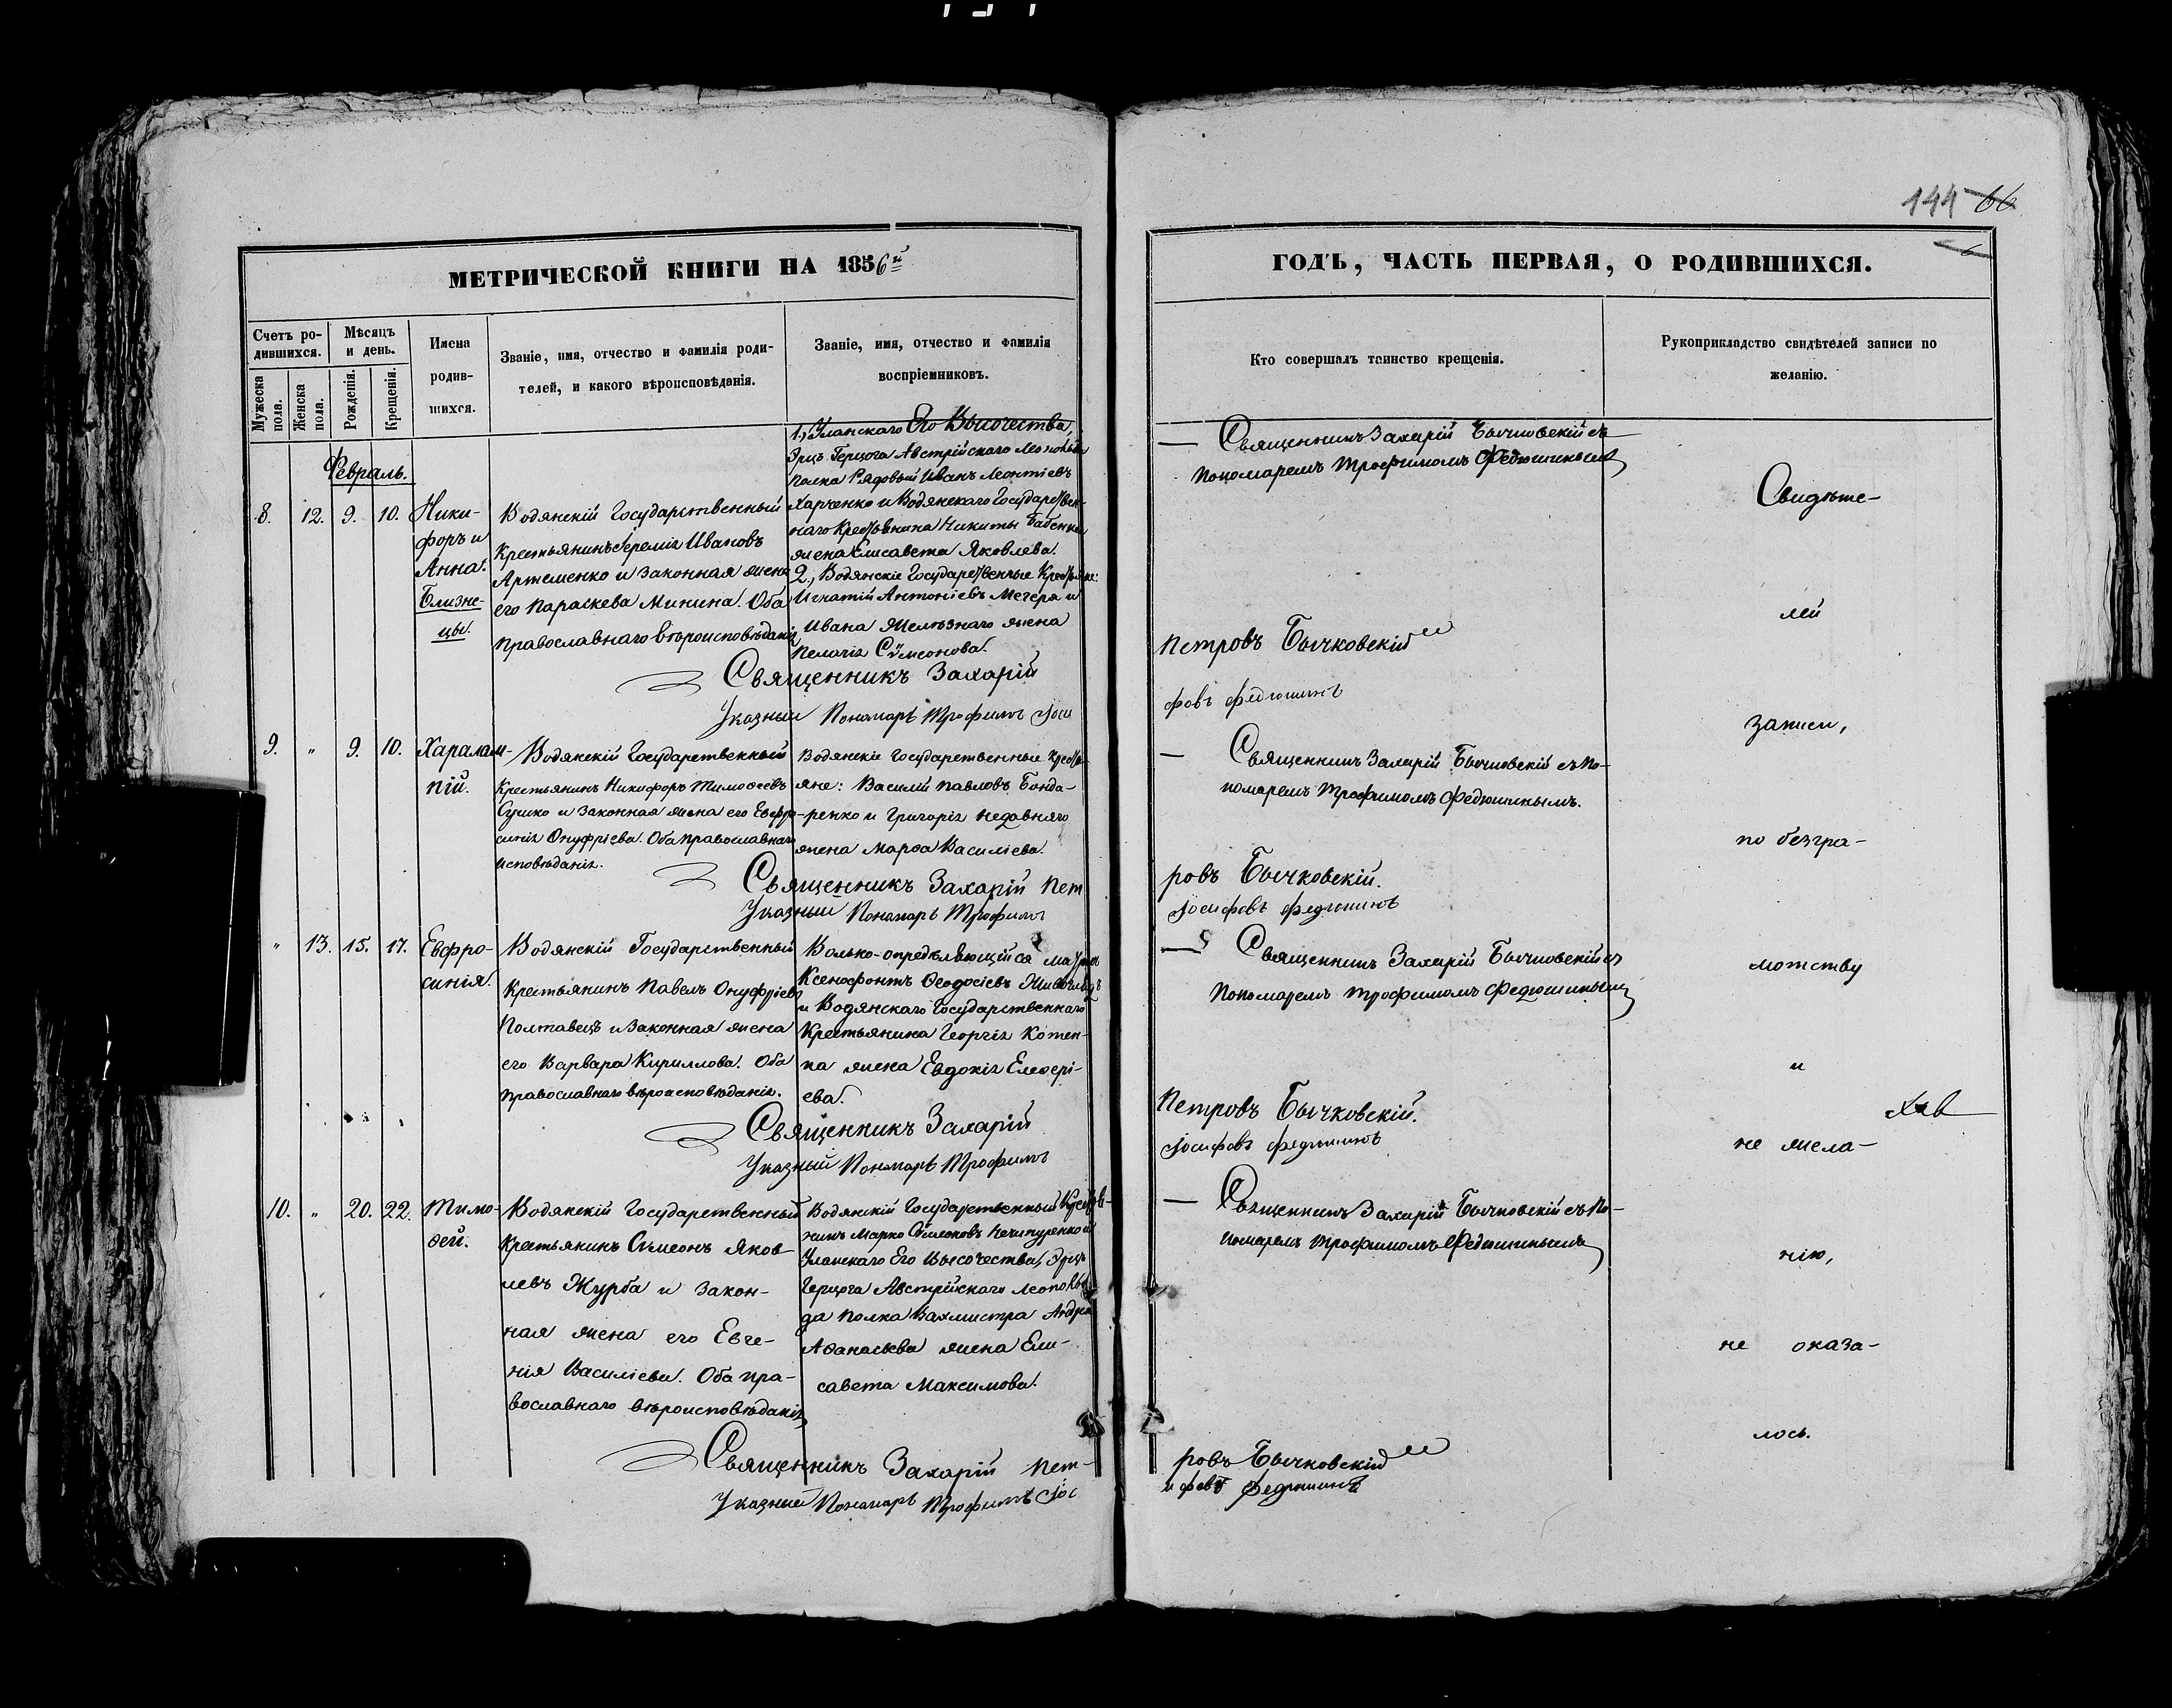 144 66
МЕТРИЧЕСКОЙ КНИГИ НА 1856й
ГОДЪ, ЧАСТЬ ПЕРВАЯ, О РОДИВШИХСЯ.
Счетъ ро-
дившихся.
Мужеска пола.
Женска пола.
Мѣсяцъ
и день.
Рожденія.
Крещенія.
Имена
родив-
шихся.
Званіе, имя, отчество и фамилія роди-
телей, и какого вѣроисповѣданія.
Званіе, имя, отчество и фамилія
воспріемниковъ.
Кто совершалъ таинство крещенія.
Рукоприкладство свидѣтелей записи по
желанію.
Февраль.
8. 12. 9. 10.
Ники-
форъ и
Анна.
Близне-
цы.
Водянскій Государственный
Крестьянинъ Іеремія Ивановъ
Артеменко и законная жена
его Параскева Минина. Оба
православнаго вѣроисповѣданія
1., Уланскаго Его Высочества,
Эрцъ-Герцога Австрійскаго Леопольда
полка Рядовый Иванъ Леонтіевъ
Харченко и Водянскаго Государствен-
наго Крестьянина Никиты Бабенка
жена Елисавета Яковлева.
2., Водянскіе Государственные Крестьяне:
Игнатій Антоніевъ Мечеря и
Ивана Желѣзнаго жена
Пелагія Сѷмеонова.
Священникъ Захарій Бычковскій съ
Пономаремъ Трофимомъ Федюшинымъ
Священникъ Захарій Петровъ Бычковскій
Указный Пономарь Трофимъ Іосифовъ Федюшинъ
9. " 9. 10.
Харалам-
пій.
Водянскій Государственный
Крестьянинъ Никифоръ Тимоѳеевъ
Сушко и законная жена его Евфро-
синія Онуфріева. Оба православнаго
исповѣданія.
Водянскіе Государственные Кресть-
яне: Василій Павловъ Бонда-
ренко и Григорія Недавняго
жена Марѳа Василіева.
Священникъ Захарій Бычковскій съ По-
номаремъ Трофимомъ Федюшинымъ.
Священникъ Захарій Петровъ Бычковскій.
Указный Пономарь Трофимъ Іосифовъ Федюшинъ
" 13. 15. 17.
Евфро-
синія.
Водянскій Государственный
Крестьянинъ Павелъ Онуфріевъ
Полтавецъ и законная жена
его Варвара Кириллова. Оба
православнаго вѣроисповѣданія.
Вольно-опредѣляющійся
Ксенофонтъ Ѳеодосіевъ
и Водянскаго Государственнаго
Крестьянина Георгія Котен-
ка жена Евдокія Елеѳері-
ева.
Священникъ Захарій Бычковскій съ
Пономаремъ Трофимомъ Федюшинымъ
Священникъ Захарій Петровъ Бычковскій.
Указный Пономарь Трофимъ Іосифовъ Федюшинъ
10. " 20. 22.
Тимо-
ѳей.
Водянскій Государственный
Крестьянинъ Сѷмеонъ Яков-
левъ Журба и закон-
ная жена его Евге-
нія Василіева. Оба пра-
вославнаго вѣроисповѣданія
Водянскій Государственный Крестья-
нинъ Марко Сѷмеоновъ Нечипуренко и
Уланскаго Его Высочества, Эрцъ-
Герцога Австрійскаго Леополь-
да полка Вахмистра Андрея
Аѳанасьева жена Ели-
савета Максимова.
Священникъ Захарій Бычковскій съ По-
номаремъ Трофимомъ Федюшинымъ
Священникъ Захарій Петровъ Бычковскій
Указный Пономарь Трофимъ Іосифовъ Федюшинъ
Свидѣте-
лей
записи,
по безгра-
мотству
и
не жела-
нію,
не оказа-
лось.